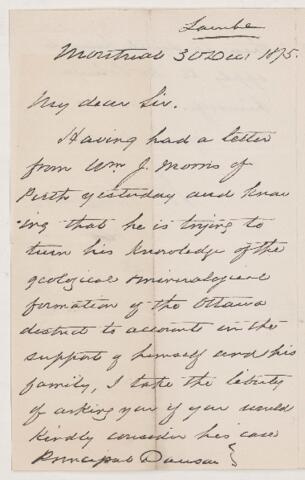 Lambe
Montreal 30 Dec. 1875.
My dear Sir.
Having had a letter
from Wm J. Morris of
Perth yesterday and know
ing that he is trying to
turn his knowledge of the
geological & mineralogical
formation of the Ottawa
district to account in the
support of himself and his
family, I take the liberty
of asking you if you would
kindly consider his case
Principal Dawson }